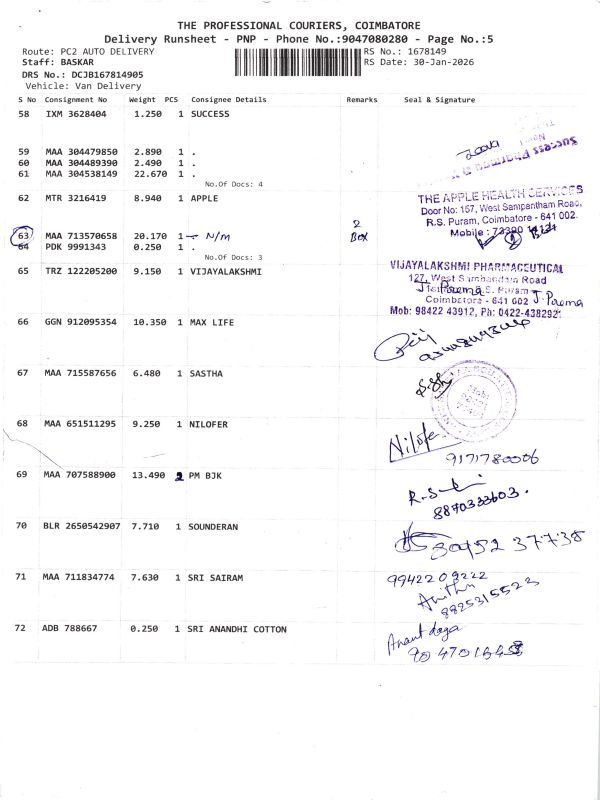 THE PROFESSIONAL COURIERS, COIMBATORE
Delivery Runsheet - PNP - Phone No.:9047080280 - Page No.:5
Route: PC2 AUTO DELIVERY RS No.: 1678149
Staff: BASKAR RS Date: 30-Jan-2026
DRS No.: DCJB167814905
Vehicle: Van Delivery
S No Consignment No Weight PCS Consignee Details Remarks Seal & Signature
58 IXM 3628404 1.250 1 SUCCESS
59 MAA 304479850 2.890 1 .
60 MAA 304489390 2.490 1 .
61 MAA 304538149 22.670 1 .
No.Of Docs: 4
62 MTR 3216419 8.940 1 APPLE
THE APPLE HEALTH SERVICES
Door No: 167, West Sampantham Road,
R.S. Puram, Coimbatore - 641 002.
Mobile :
63 MAA 713570658 20.170 1 - N/M 2 Box
64 PDK 9991343 0.250 1 .
No.Of Docs: 3
65 TRZ 122205200 9.150 1 VIJAYALAKSHMI
VIJAYALAKSHMI PHARMACEUTICAL
127, West Sambandam Road
R.S. Puram
Coimbatore - 641 002 J. Prema
Mob: 98422 43912, Ph: 0422-4382921
66 GGN 912095354 10.350 1 MAX LIFE
67 MAA 715587656 6.480 1 SASTHA
68 MAA 651511295 9.250 1 NILOFER
Nilofer
9171780006
69 MAA 707588900 13.490 2 PM BJK
8870333603.
70 BLR 2650542907 7.710 1 SOUNDERAN
80952 37738
71 MAA 711834774 7.630 1 SRI SAIRAM
9942209222
Anitha
8825315523
72 ADB 788667 0.250 1 SRI ANANDHI COTTON